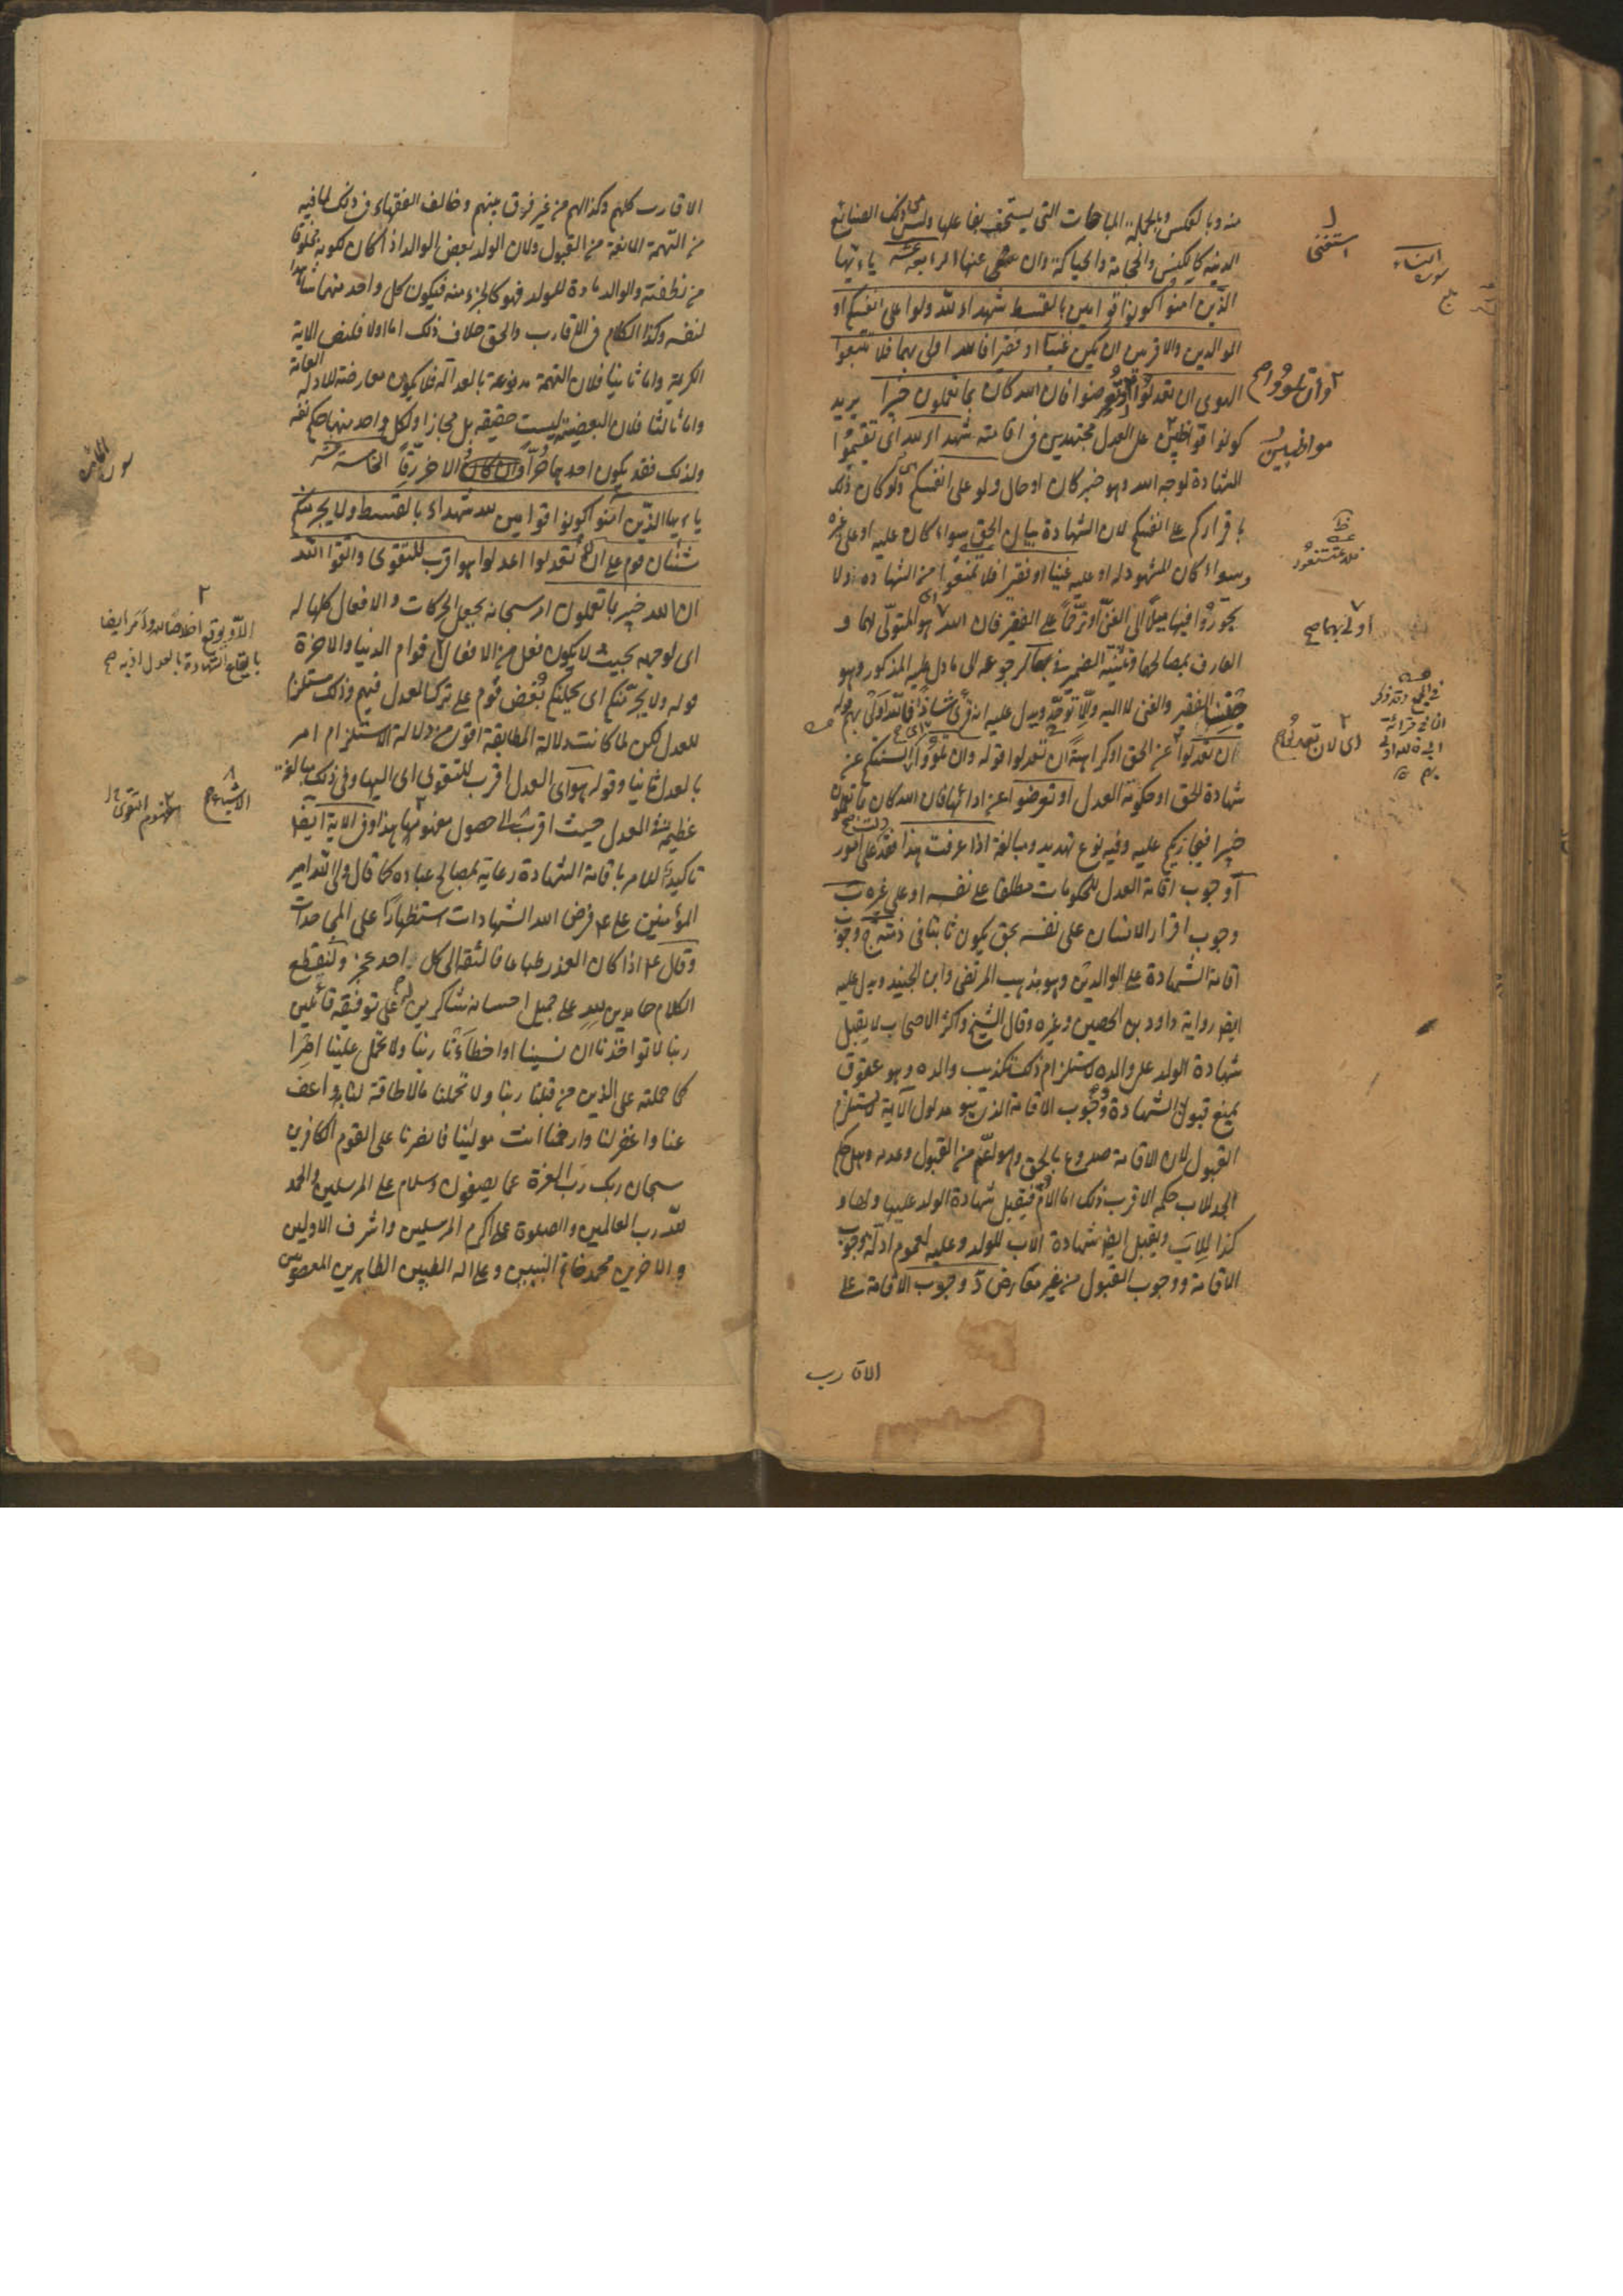 منه وبالعكس وبالجملة المباحات التي يستخف بفاعلها وليس من ذلك الصنايع
الدنية كالكنس والحجامة والحياكة وان غنى عنها الرابعة عشر يا ايها
الذين امنوا كونوا قوامين بالقسط شهداء لله ولو على انفسكم او
الوالدين والاقربين ان يكن غنيا او فقيرا فالله اولى بهما فلا تتبعوا
الهوى ان تعدلوا او تعرضوا فان الله كان بما تعملون خبيرا يريد
كونوا قوامين على العدل مجتهدين في اقامته شهداء لله اى تقيموا
الشهادة لوجه الله وهو خبر كان او حال ولو على انفسكم اى ولو كان ذلك
باقراركم على انفسكم لان الشهادة بيان الحق سواء كان عليه او على غيره
وسواء كان المشهود له او عليه غنيا او فقيرا فلا تمتنعوا من الشهادة او لا
تجوروا فيها ميلا الى الغنى او ترحما على الفقير فان الله هو المتولى لهما و
العارف بمصالحهما وتثنية الضمير في بهما لرجوعه الى ما دل عليه المذكور وهو
جنسا الفقير والغنى لا اليه والا لوحد ويدل عليه انه قرئ شاذا فالله اولى بهم قوله
ان تعدلوا عن الحق او كراهة ان تعدلوا قوله وان تلووا السنتكم عن
شهادة الحق او حكومة العدل او تعرضوا عن ادائها فان الله كان بما تعملون
خبيرا فيجازيكم عليه وفيه نوع تهديد ومبالغة اذا عرفت هذا فقد دلت على امور
آ وجوب اقامة العدل للحكومات مطلقا على نفسه او على غيره ب
وجوب اقرار الانسان على نفسه بحق يكون ثابتا في ذمته ج وجوب
اقامة الشهادة على الوالدين وهو مذهب المرتضى وابن الجنيد ويدل عليه
ايضا رواية داود بن الحصين وغيره وقال الشيخ واكثر الاصحاب لا يقبل
شهادة الولد على والده لاستلزام ذلك تكذيب والده وهو عقوق
يمنع قبول الشهادة ووجوب الاقامة الذى هو مدلول الآية لا يستلزم
القبول لان الاقامة صدوع بالحق وهو اعم من القبول وعدمه وهل حكم
الجد للاب حكم الاقرب ذلك اما الام فيقبل شهادة الولد عليها ولها و
كذا للاب ويقبل ايضا شهادة الاب للولد وعليه لعموم ادلة وجوب
الاقامة ووجوب القبول من غير معارض د وجوب الاقامة على
الاقارب
استغنى
سورة النساء
وان تلووا صح
مواظبين
اولى بهما صح
اى لان تعدلوا صح
الاقارب كلهم وكذا لهم من غير فرق بينهم وخالف الفقهاء في ذلك لما فيه
من التهمة المانعة من القبول ولان الولد بعض الوالد اذا كان تكونه مخلوقا
من نطفته والوالد مادة للولد فهو كالجزء منه فيكون كل واحد منهما شاهدا
لنفسه وكذا الكلام في الاقارب والحق خلاف ذلك اما اولا فلنص الاية
الكريمة واما ثانيا فلان التهمة مدفوعة بالعدالة فلا يكون معارضة للادلة العامة
واما ثالثا فلان البعضية ليست حقيقة بل مجازا ولكل واحد منهما حكم نفسه
ولذلك فقد يكون احدهما حرا والاخر رقا الخامسة عشر
يا ايها الذين آمنوا كونوا قوامين لله شهداء بالقسط ولا يجرمنكم
شنئان قوم على ان لا تعدلوا اعدلوا هو اقرب للتقوى واتقوا الله
ان الله خبير بما تعملون امر سبحانه بجعل الحركات والافعال كلها له
اى لوجهه بحيث لا يكون فعل من الافعال قوام الدنيا والاخرة
قوله ولا يجرمنكم اى يحملنكم بغض قوم على ترك العدل فيهم وذلك مستلزم
للعدل لكن لما كانت دلالة المطابقة اقوى من دلالة الاستلزام امر
بالعدل ثانيا وقوله هو اى العدل اقرب للتقوى اى اليها وفي ذلك مبالغة
عظيمة في العدل حيث اقرب الى حصول مفهومها هذا وفي الاية ايضا
تاكيد للامر باقامة الشهادة رعاية لمصالح عباده كما قال ولى الله امير
المؤمنين على ع فرض الله الشهادات استظهارا على المجاحدات
وقال ع اذا كان العذر طباعا فالثقة الى كل احد عجز ولنقطع
الكلام حامدين لله على جميل احسانه شاكرين له على توفيقه قائلين
ربنا لا تواخذنا ان نسينا او اخطأنا ربنا ولا تحمل علينا اصرا
كما حملته على الذين من قبلنا ربنا ولا تحملنا مالا طاقة لنا به واعف
عنا واغفر لنا وارحمنا انت مولينا فانصرنا على القوم الكافرين
سبحان ربك رب العزة عما يصفون وسلام على المرسلين والحمد
لله رب العالمين والصلوة على اكرم المرسلين واشرف الاولين
والاخرين محمد خاتم النبيين وعلى اله الطيبين الطاهرين المعصومين
الا ويوقع اخلاصا لله وامر ايضا
بايقاع الشهادة بالعدل اذ به صح
الاشياء صح